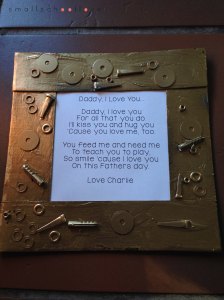 smallschoollove
Daddy, I Love You...
Daddy, I love you
For all that you do.
I'll kiss you and hug you
'Cause you love me, too.
You feed me and need me
To teach you to play,
So smile 'cause I love you
On this Father's day.
Love Charlie